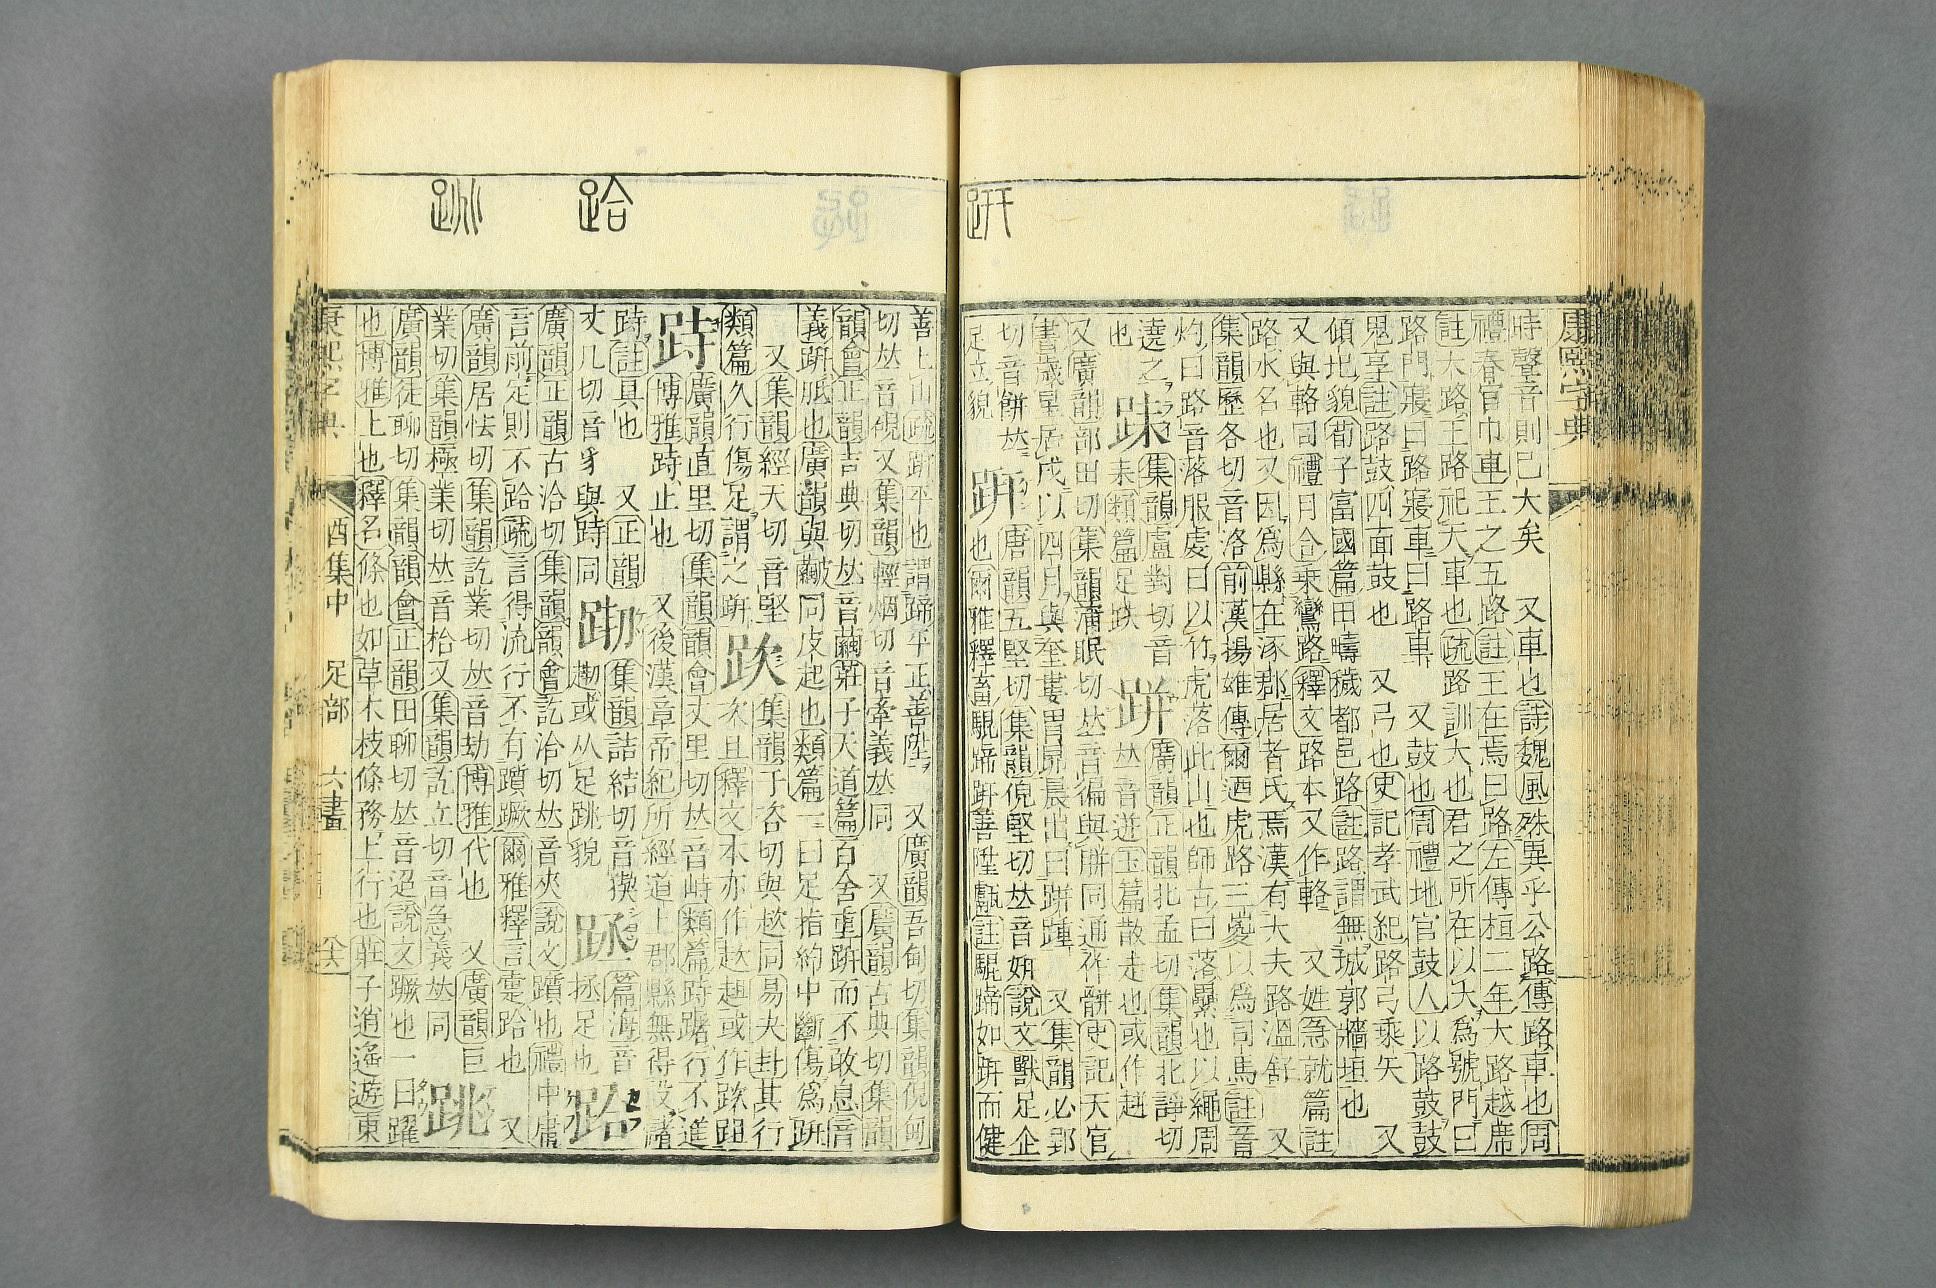 康熙字典
時聲音則已大矣 又車也詩魏風殊異乎公路傳路車也周
禮春官巾車王之五路註王在焉曰路左傳桓二年大路越席
註大路玉路祀天車也疏路訓大也君之所在以大爲號門曰
路門寢曰路寢車曰路車 又鼓也周禮地官鼓人以路鼓鼓
鬼享註路鼓四面鼓也 又弓也史記孝武紀路弓乘矢 又
傾地貌荀子富國篇田疇穢都邑路註路謂無城郭牆垣也
又與輅同禮月令乘鸞路釋文路本又作輅 又姓急就篇註
路水名也又因爲縣在涿郡居者氏焉漢有大夫路溫舒 又
集韻歷各切音洛前漢揚雄傳爾迺虎路三嵏以爲司馬註晉
灼曰路音落服虔曰以竹虎落此山也師古曰落纍也以繩周
遶之 跊集韻盧對切音
也 耒類篇足跌 跰廣韻正韻北孟切集韻北諍切
𠀤音逬玉篇散走也或作趙
又廣韻部田切集韻蒲眠切𠀤音徧與胼同通作骿史記天官
書歲星居戌以四月與奎婁胃昴晨出曰跰踵 又集韻必郢
切音餅𠀤
足立貌 趼唐韻五堅切集韻倪堅切𠀤音姸說文獸足企
也爾雅釋畜騉蹄趼善陞甗註騉蹄如趼而健
善上山疏趼平也謂蹄平正善陞 又廣韻吾甸切集韻倪甸
切𠀤音硯又集韻輕烟切音牽義𠀤同 又廣韻古典切集韻
韻會正韻吉典切𠀤音繭莊子天道篇百舍重趼而不敢息音
義趼胝也廣韻與䌍同皮起也類篇一曰足指約中斷傷爲趼
又集韻經天切音堅
類篇久行傷足謂之趼 趑集韻千咨切與趑同易夬卦其行
次且釋文本亦作趑趄或作跌跙
跱廣韻直里切集韻韻會丈里切𠀤音峙類篇跱躇行不進
博雅跱止也 又後漢章帝紀所經道上郡縣無得設儲
跱註具也 又正韻
丈几切音豸與跱同 集韻詰結切音猰
趣或从足跳貌 篇海音
拯足也 跲
廣韻正韻古洽切集韻韻會訖洽切𠀤音夾說文躓也禮中庸
言前定則不跲疏言得流行不有躓蹶爾雅釋言疐跲也 又
廣韻居怯切集韻訖業切𠀤音劫博雅代也 又廣韻巨
業切集韻極業切𠀤音㭘又集韻訖立切音急義𠀤同 跳
廣韻徒聊切集韻韻會正韻田聊切𠀤音迢說文蹶也一曰躍
也博雅上也釋名條也如草木枝條務上行也莊子逍遙遊東
康熙字典 酉集中 足部 六畫 六